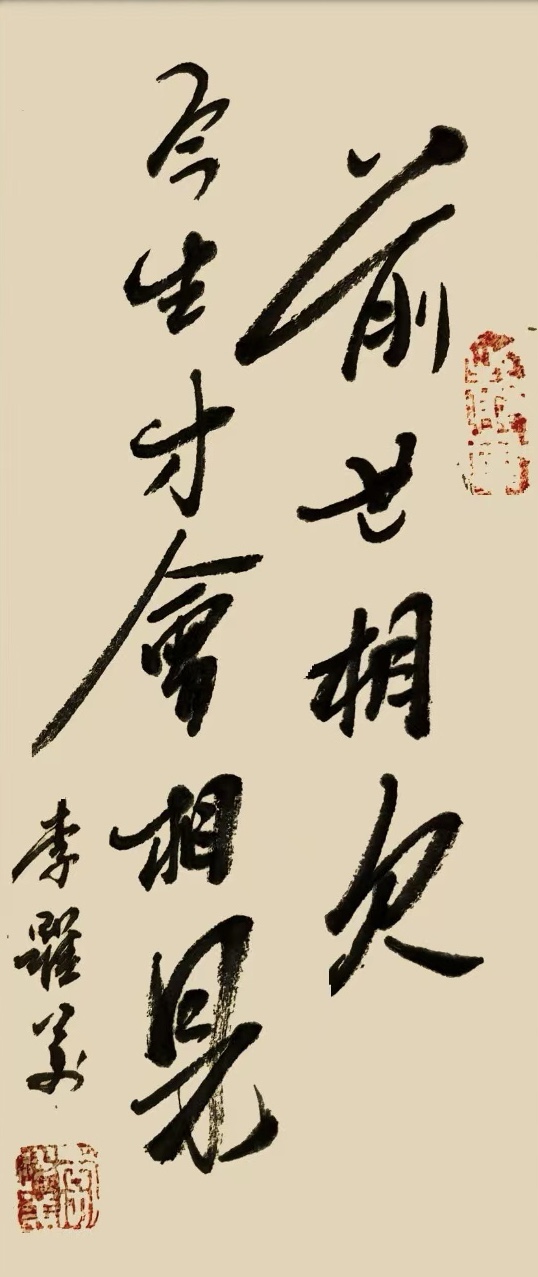 前世相欠
今生才會相見
李躍